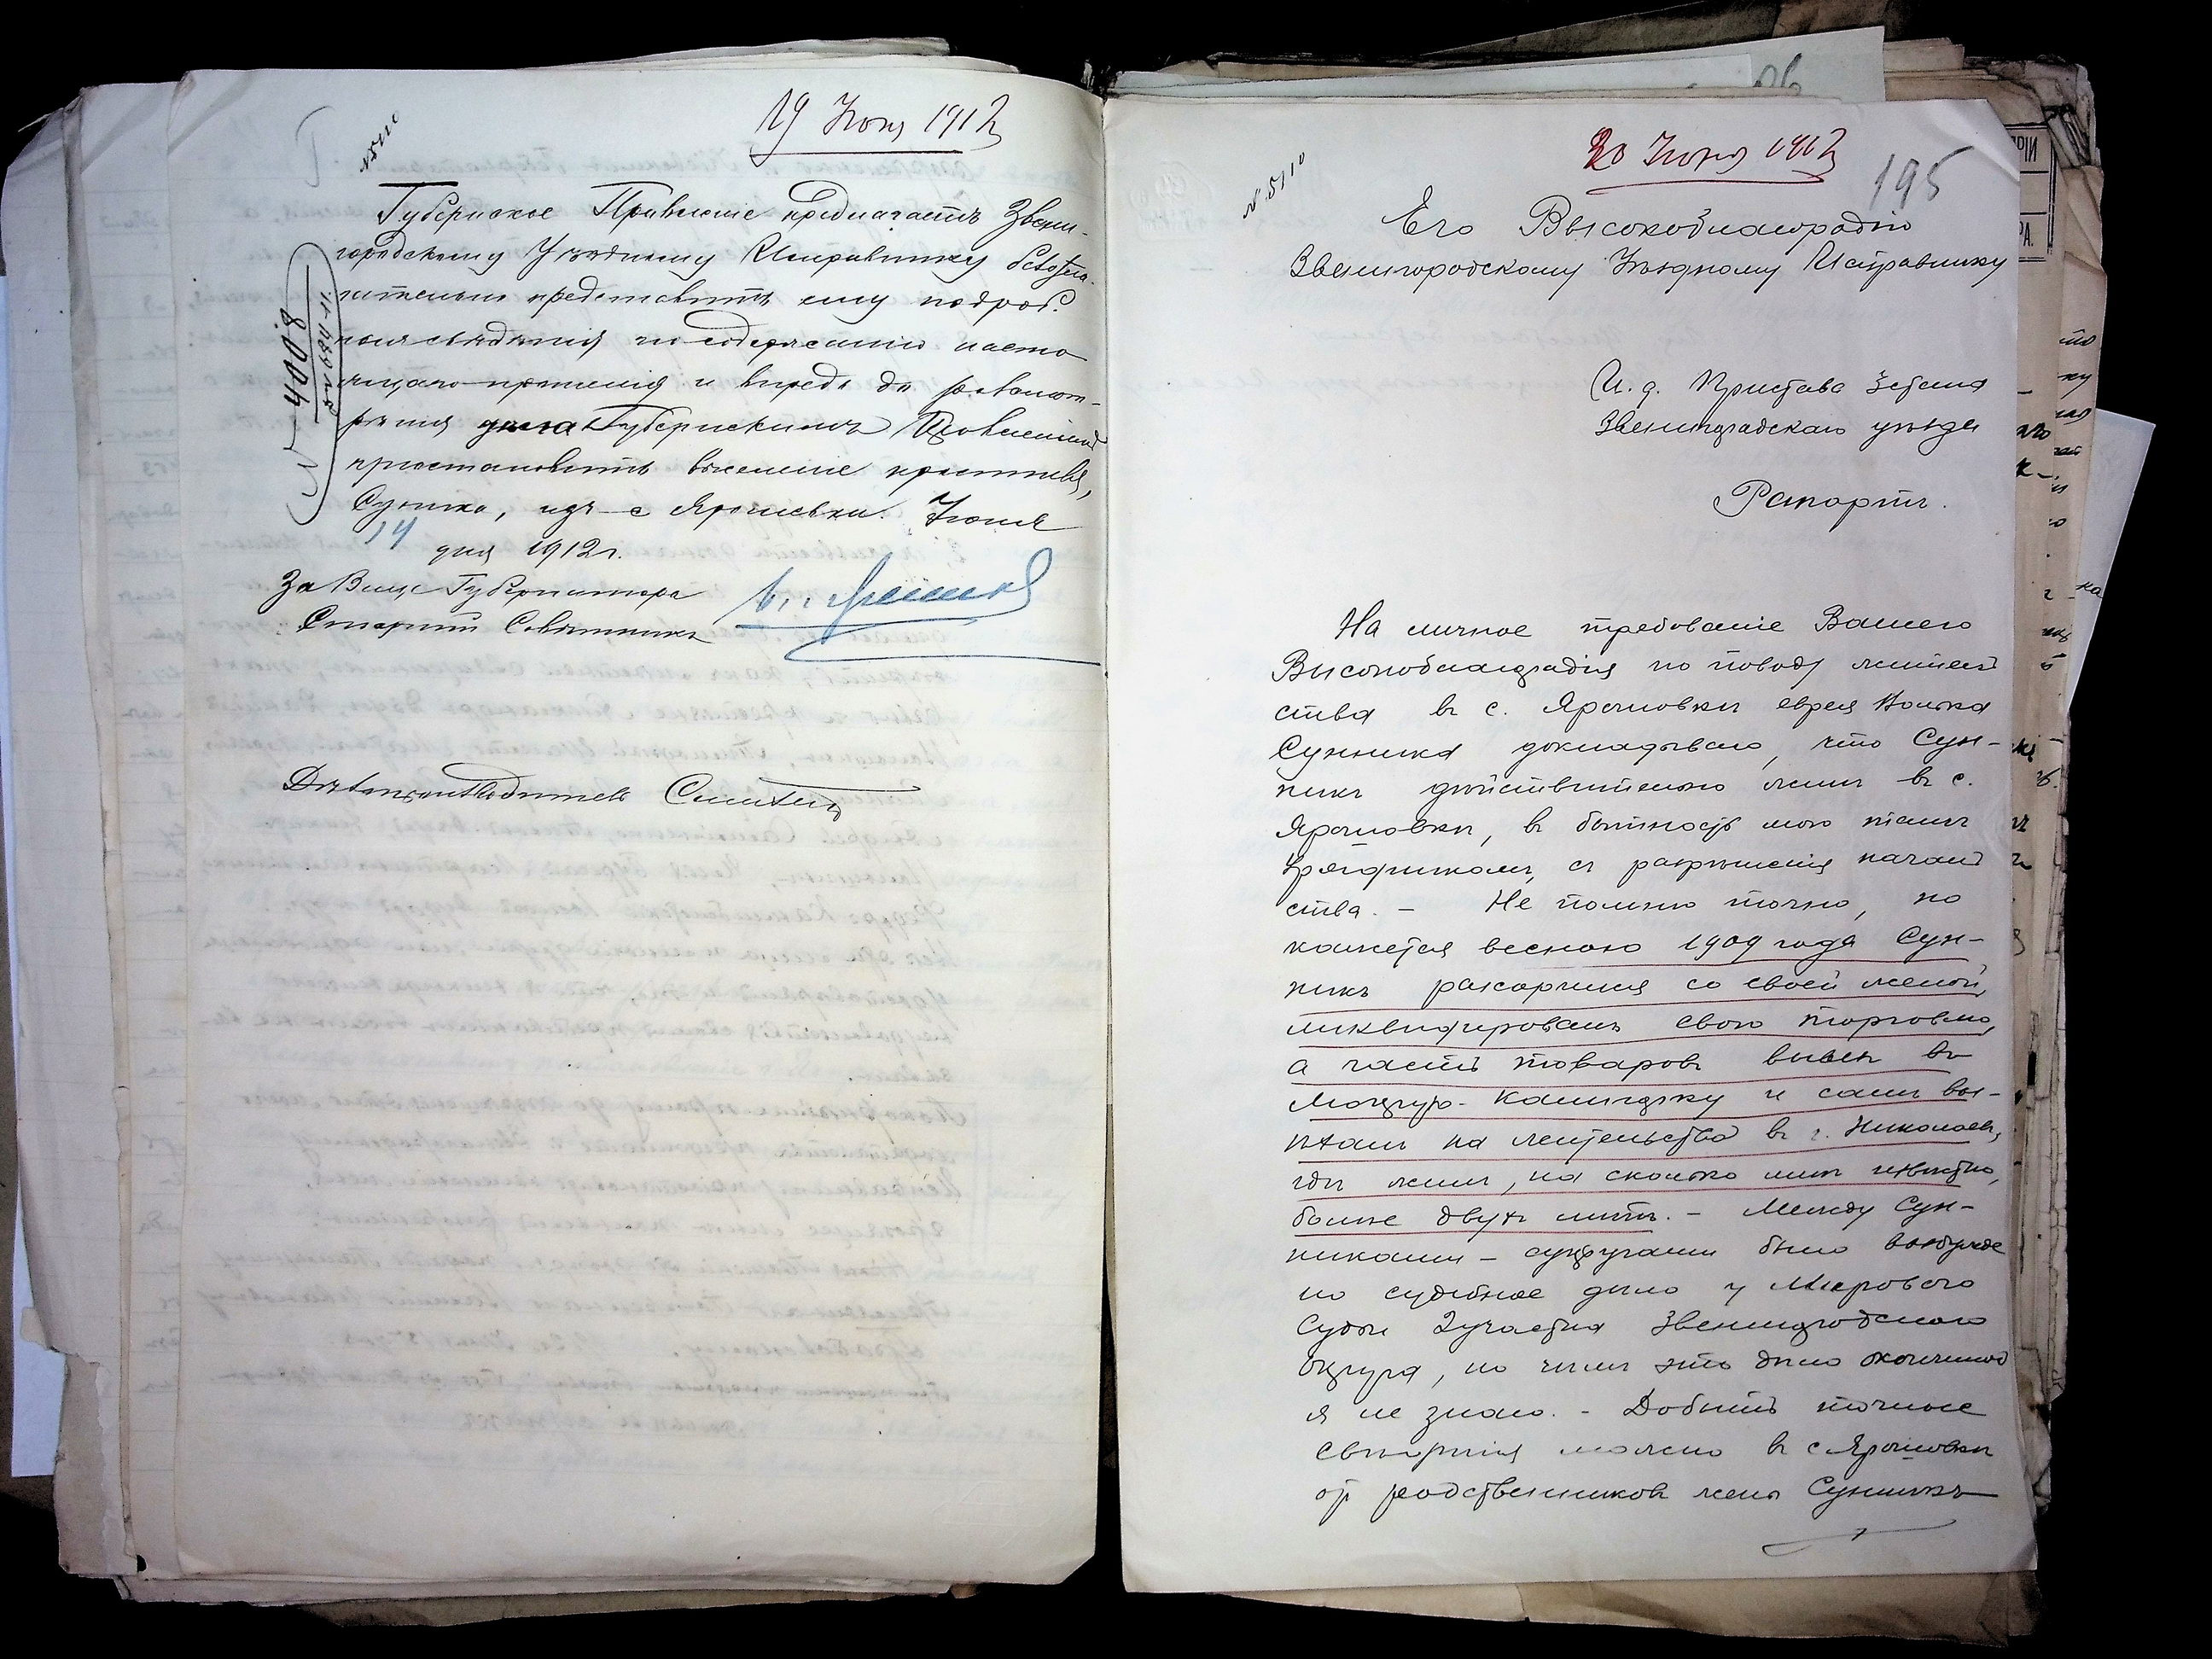 19 Июня 1912
№ 5110
Губернское Правленіе предлагаетъ Звени-
городскому Уѣздному Исправнику безотла-
гательно представить ему подроб-
ныя свѣдѣнія по содержанію насто
ящаго прошенія и впредь до разсмот-
рѣнія дѣла Губернскимъ Правленіемъ
пріостановить выселеніе просителя,
Суника, изъ с Ярошевки. Іюня
14 дня 1912 г.
За Вице Губернатора
Старшій Совѣтникъ
Дѣлопроизводитель
№ 4008
20 Июня 1912
195
№ 5110
Его Высокоблагородію
Звенигородскому Уѣздному Исправнику
И. д. Пристава 3 стана
Звенигородскаго уѣзда
Рапортъ.
На личное требованіе Вашего
Высокоблагородія по поводу житель
ства въ с. Ярошовкѣ еврея Волька
Сунника докладываю, что Сун-
никъ дѣйствительно жилъ въ с.
Ярошовкѣ, въ бытность мою тамъ
Урядникомъ, съ разрѣшенія началь
ства. – Не помню точно, но
кажется весною 1909 года Сун-
никъ разсорился со своей женой,
ликвидировалъ свою торговлю,
а часть товаровъ вывезъ въ
Мокрую-Калигорку и самъ вы-
ѣхалъ на жительство въ г. Николаевъ,
гдѣ жилъ, на сколько мнѣ извѣстно,
болѣе двухъ лѣтъ. – Между Сун-
никами – супругами было возбужде
но судебное дѣло у Мирового
Судьи 2 участка Звенигородскаго
Округа, но чѣмъ это дѣло окончилось
я не знаю. – Добыть точные
свѣдѣнія можно въ с Ярошовкѣ
отъ родственниковъ жены Сунникъ